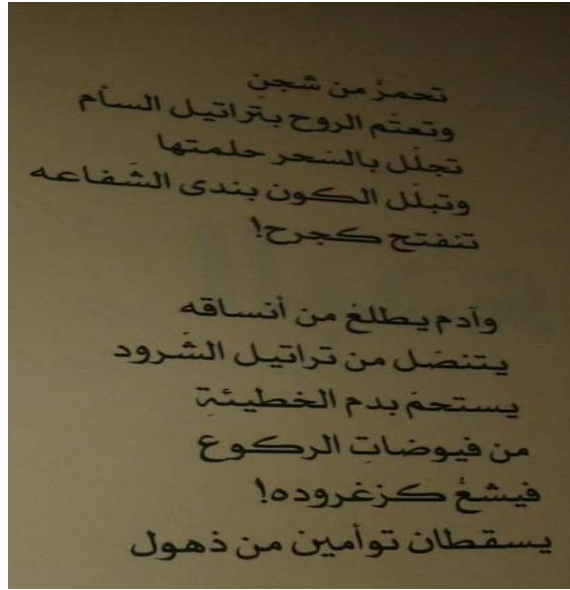 تحمرُ من شجن
وتعتّم الروح بتراتيل السأم
تجلّل بالسَحر حلمتها
وتبلّل الكون بندى الشَفاعه
تنفتح كجرح!
وآدم يطلعُ من أنساقه
يتنصَل من تراتيل الشَرود
يستحمَ بدم الخطيئةِ
من فيوضاتِ الركوع
فيشعُ كزغروده!
يسقطان توأمين من ذهول